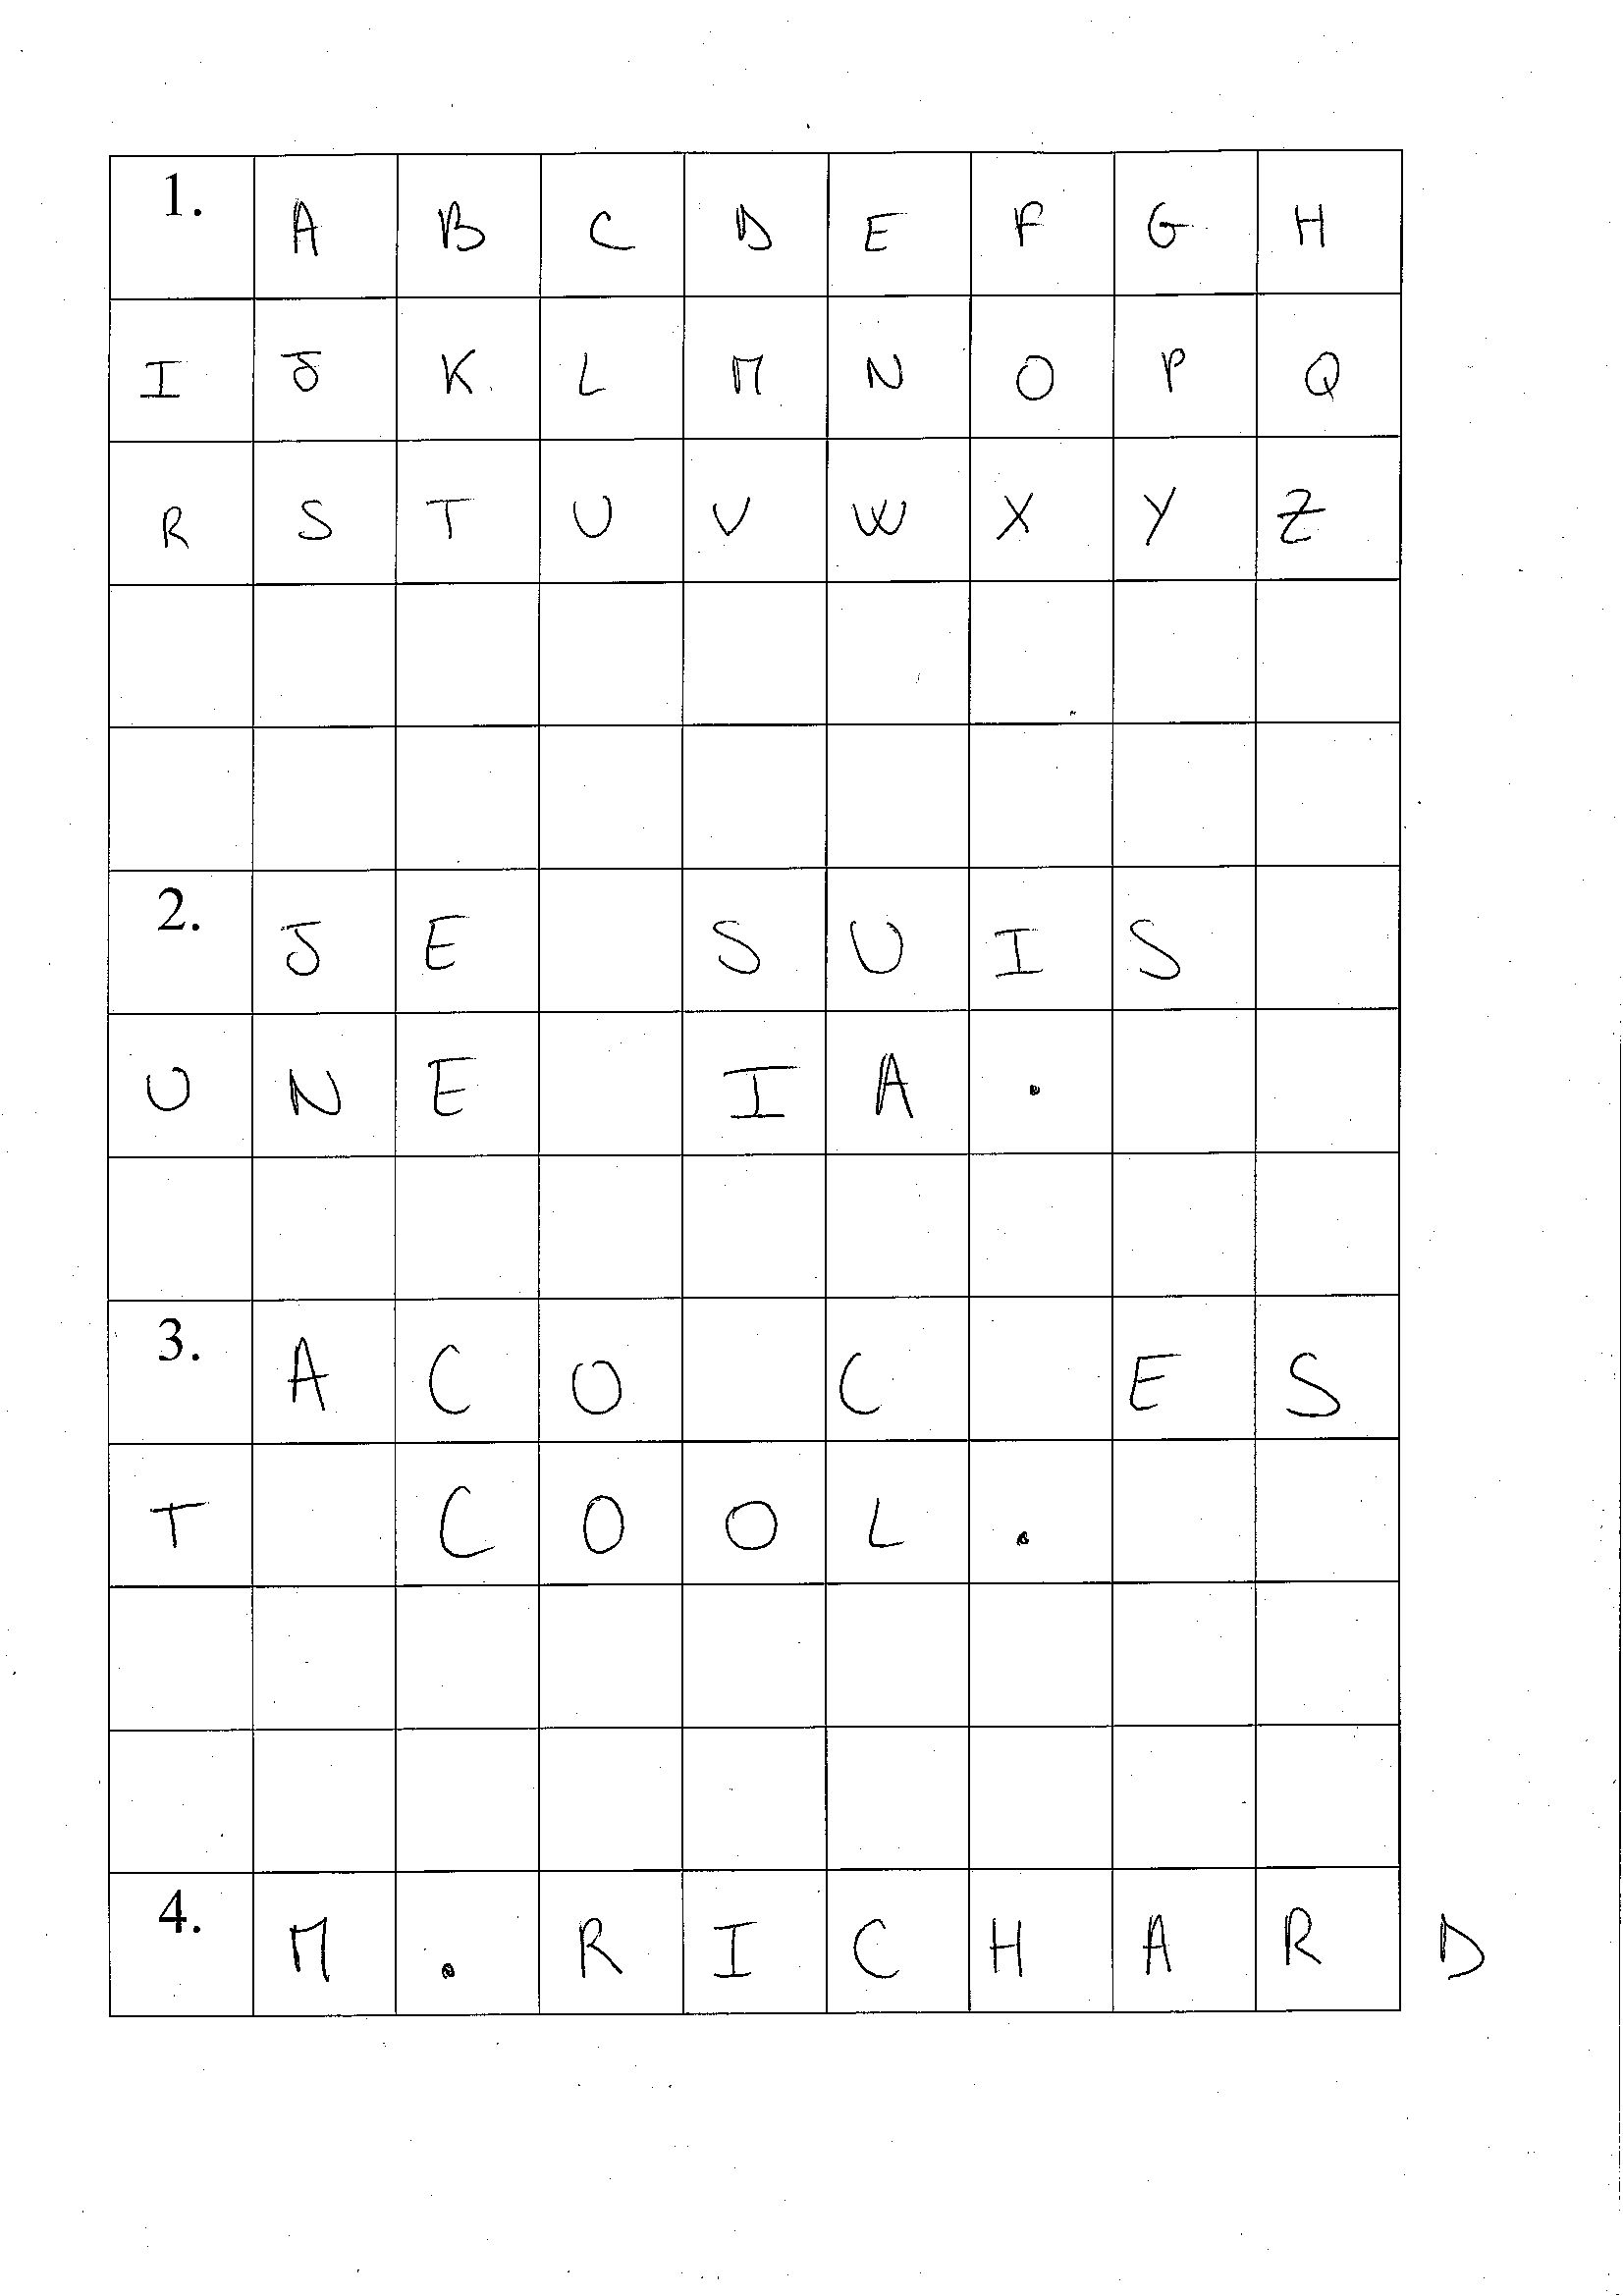 1. A B C D E F G H
I J K L M N O P Q
R S T U V W X Y Z
2. J E S U I S
U N E I A .
3. A C O C E S
T C O O L .
4. M . R I C H A R D